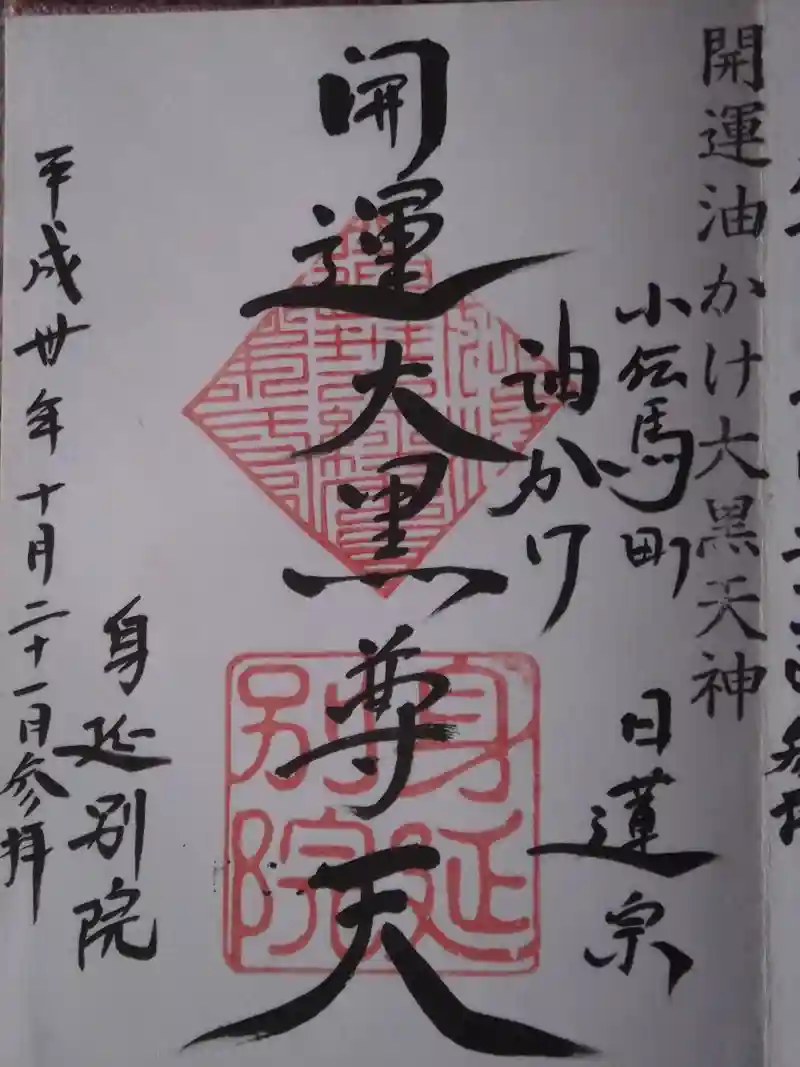 開運油かけ大黒天神
小伝馬町
日蓮宗
油かけ
開運大黒尊天
身延別院
身延別院
平成卅年十月二十一日参拝